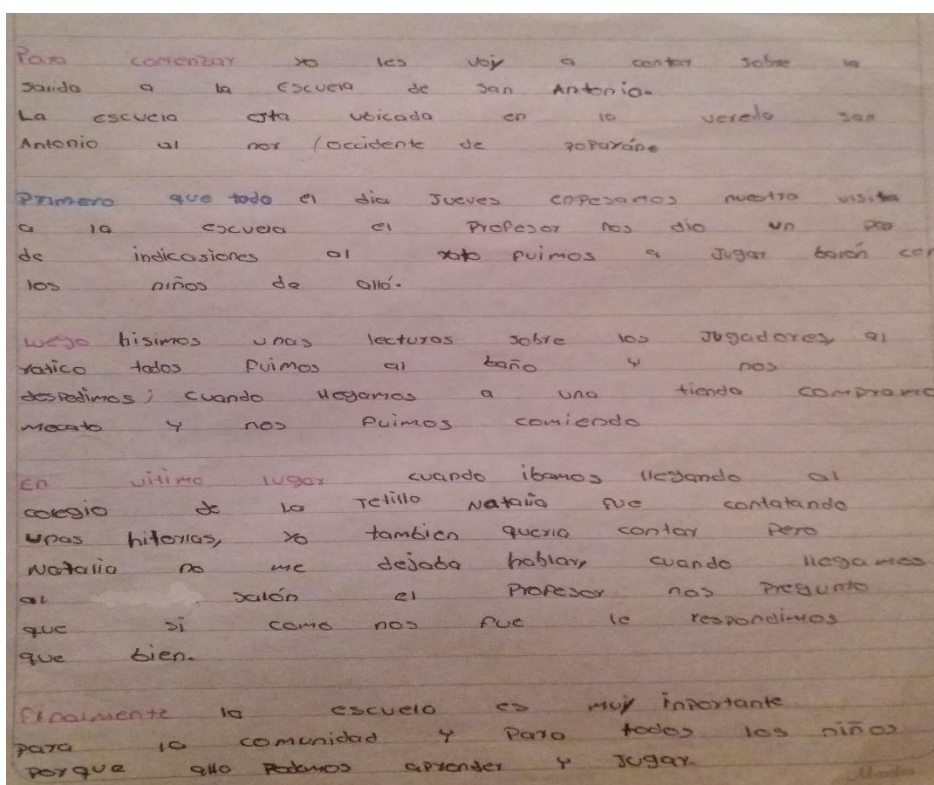 Para comenzar yo les voy a contar sobre la
salida a la escuela de san Antonio.
La escuela esta ubicada en la vereda san
Antonio al nor / occidente de popayán.
Primero que todo el dia Jueves enpesamos nuestra visita
a la escuela el Profesor nos dio un par
de indicasiones al rato fuimos a Jugar balón con
los niños de allá.
Luego hisimos unas lecturas sobre los Jugadores, al
ratico todos fuimos al baño y nos
despedimos; cuando llegamos a una tienda compramo
mecato y nos fuimos comiendo
En ultimo lugar cuando ibamos llegando al
colegio de La Tetillo Natalia fue contatando
unas hitorias, yo tambien queria contar pero
Natalia no me dejaba hablar, cuando llegamos
al salón el Profesor nos pregunto
que si como nos fue le respondimos
que bien.
Finalmente la escuela es muy inportante
para la comunidad y Para todos los niños
Porque alla Podemos aprender y Jugar.